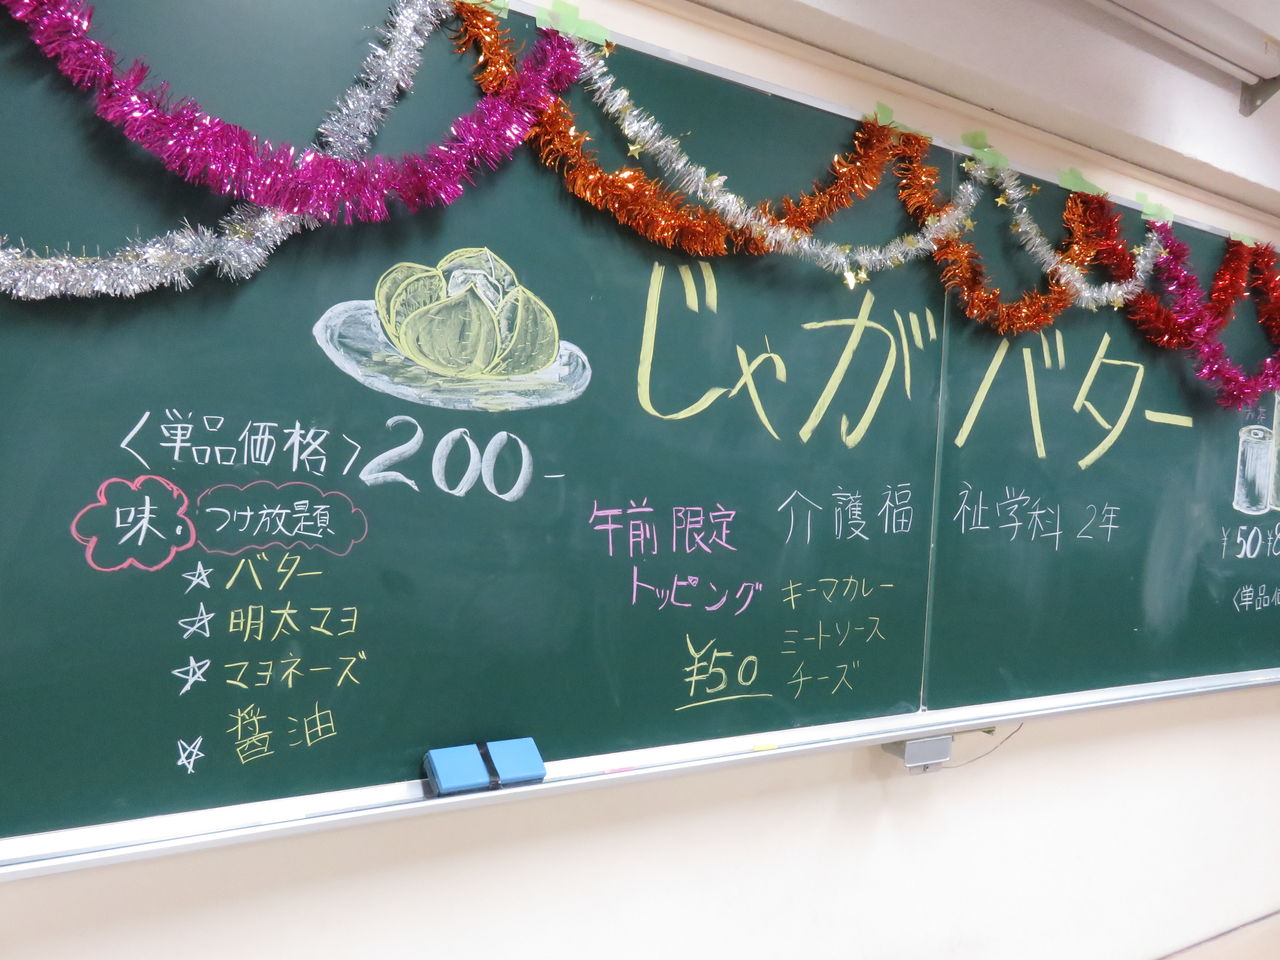 じゃがバター
〈単品価格〉200-
味. つけ放題
☆バター
☆明太マヨ
☆マヨネーズ
☆醤油
介護福祉学科2年
午前限定
トッピング
¥50
キーマカレー
ミートソース
チーズ
お茶
¥50
〈単品価